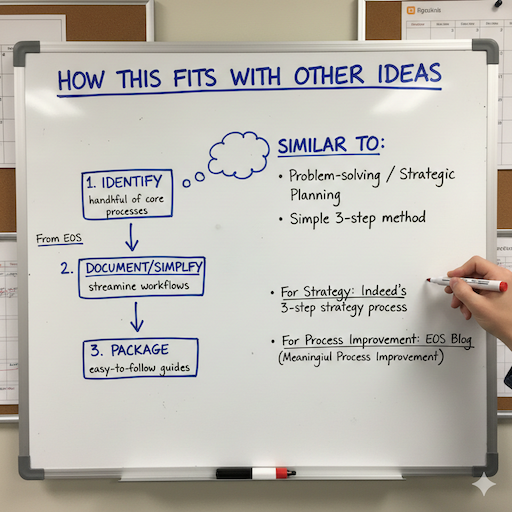 HOW THIS FITS WITH OTHER IDEAS
1. IDENTIFY
handhful of core
processes
From EOS
2. DOCUMENT/SIMPLFY
streamine workflows
3. PACKAGE
easy-to-follow guides
SIMILAR TO:
• Problem-solving / Strategic
Planning
• Simple 3-step method
• For Strategy: Indeed's
3-step strategy process
• For Process Improvement: EOS Blog
(Meaningiul Process Improvement)